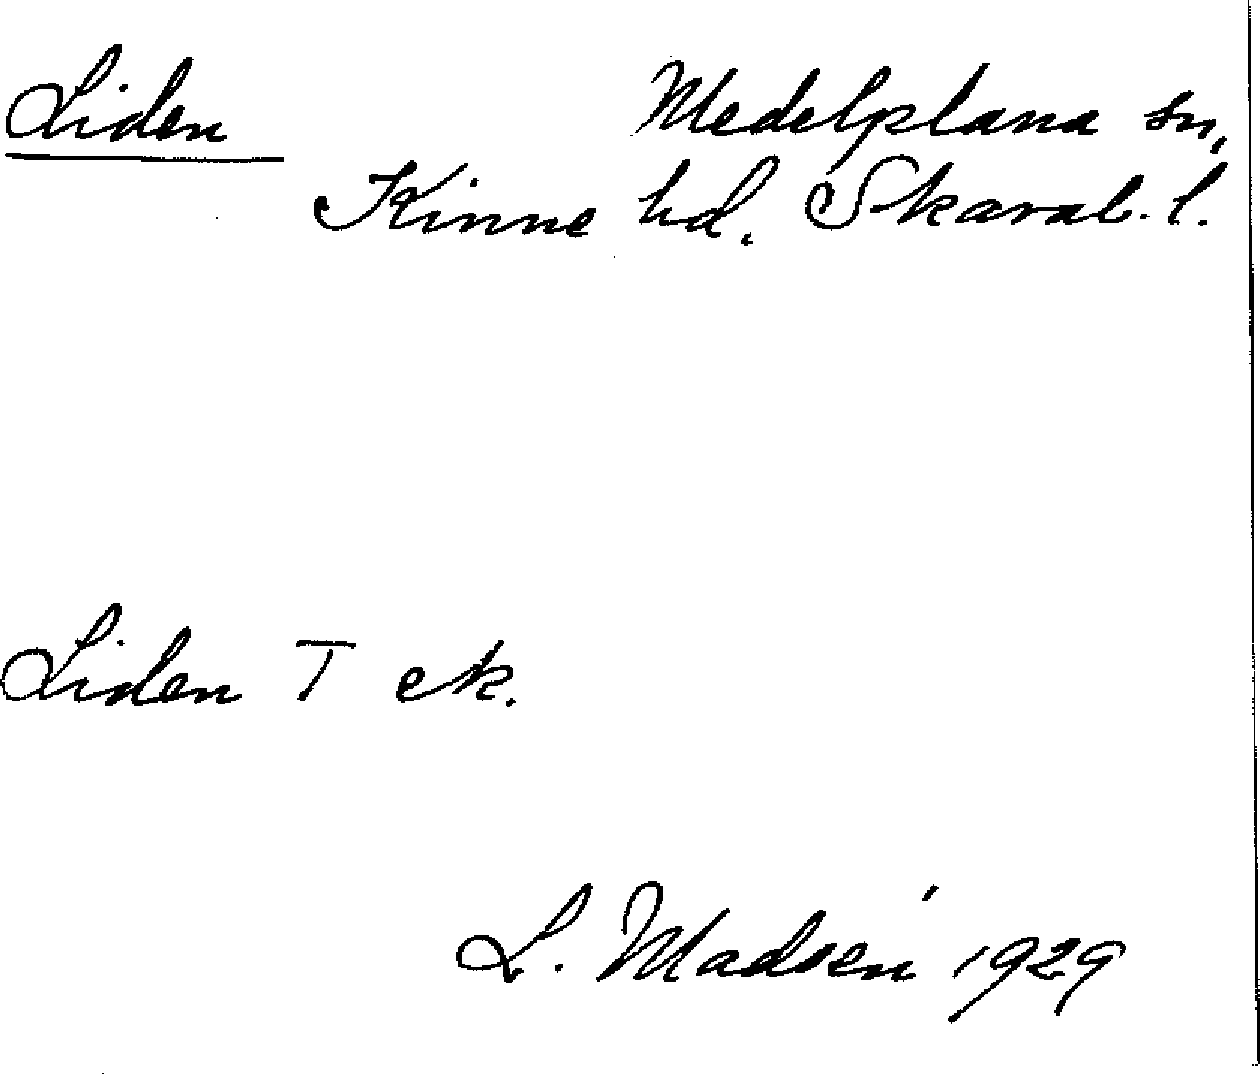 Liden Medelplana sn,
Kinne hd. Skarab. l.
Liden T ek.
L. Madsén 1929